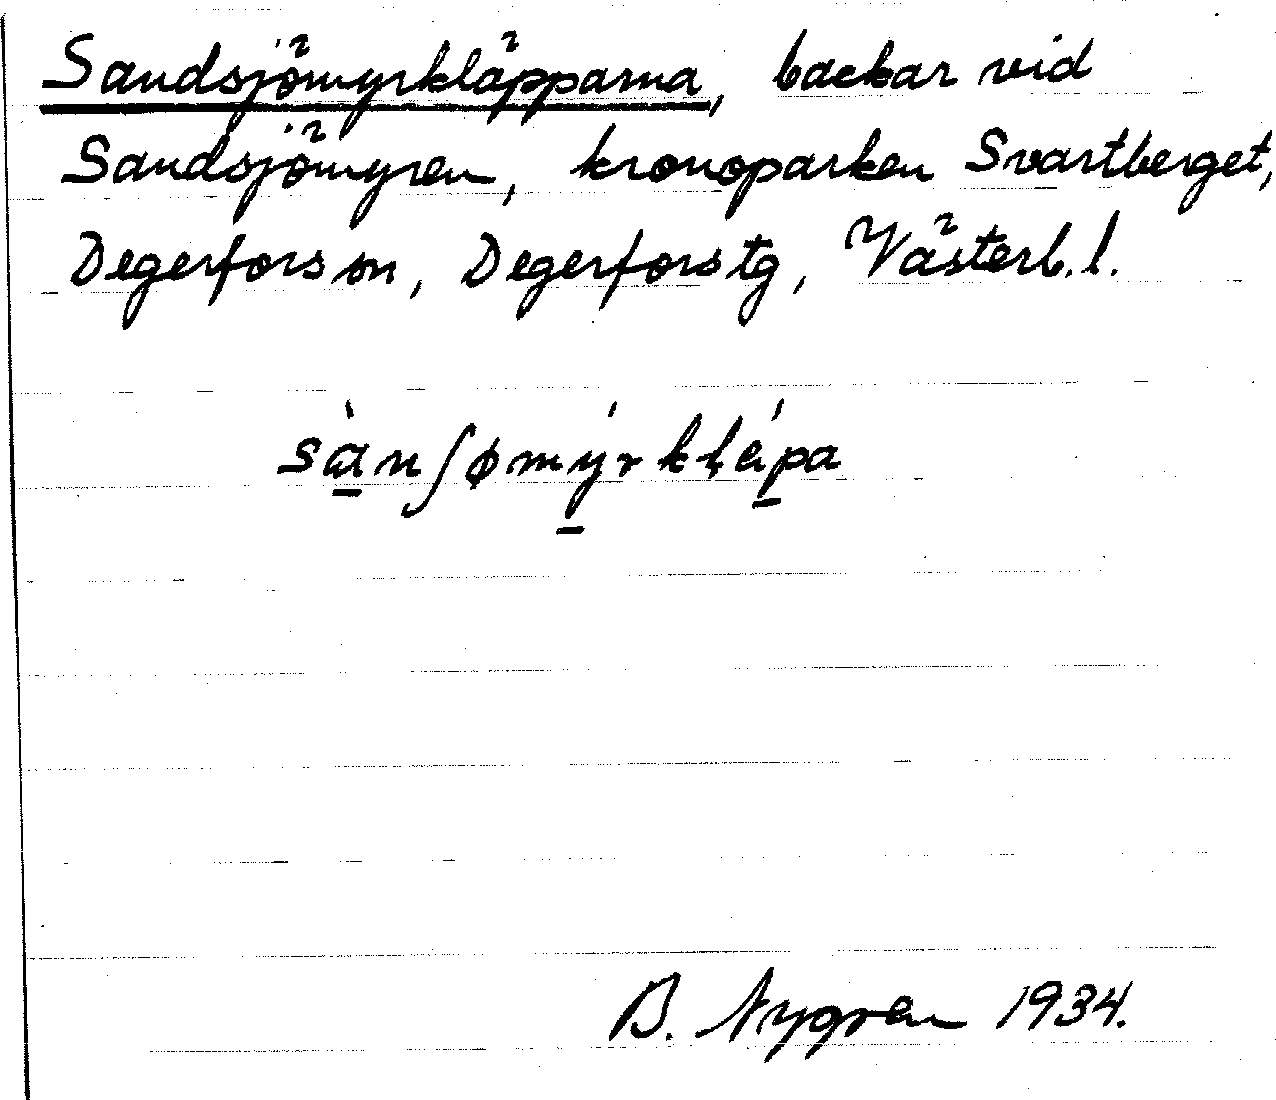 Sandsjömyrkläpparna, backar vid
Sandsjömyren, kronoparken Svartberget,
Degerfors sn, Degerfors tg, Västerb. l.
sànʃømýrkḷépa
B. Nygren 1934.